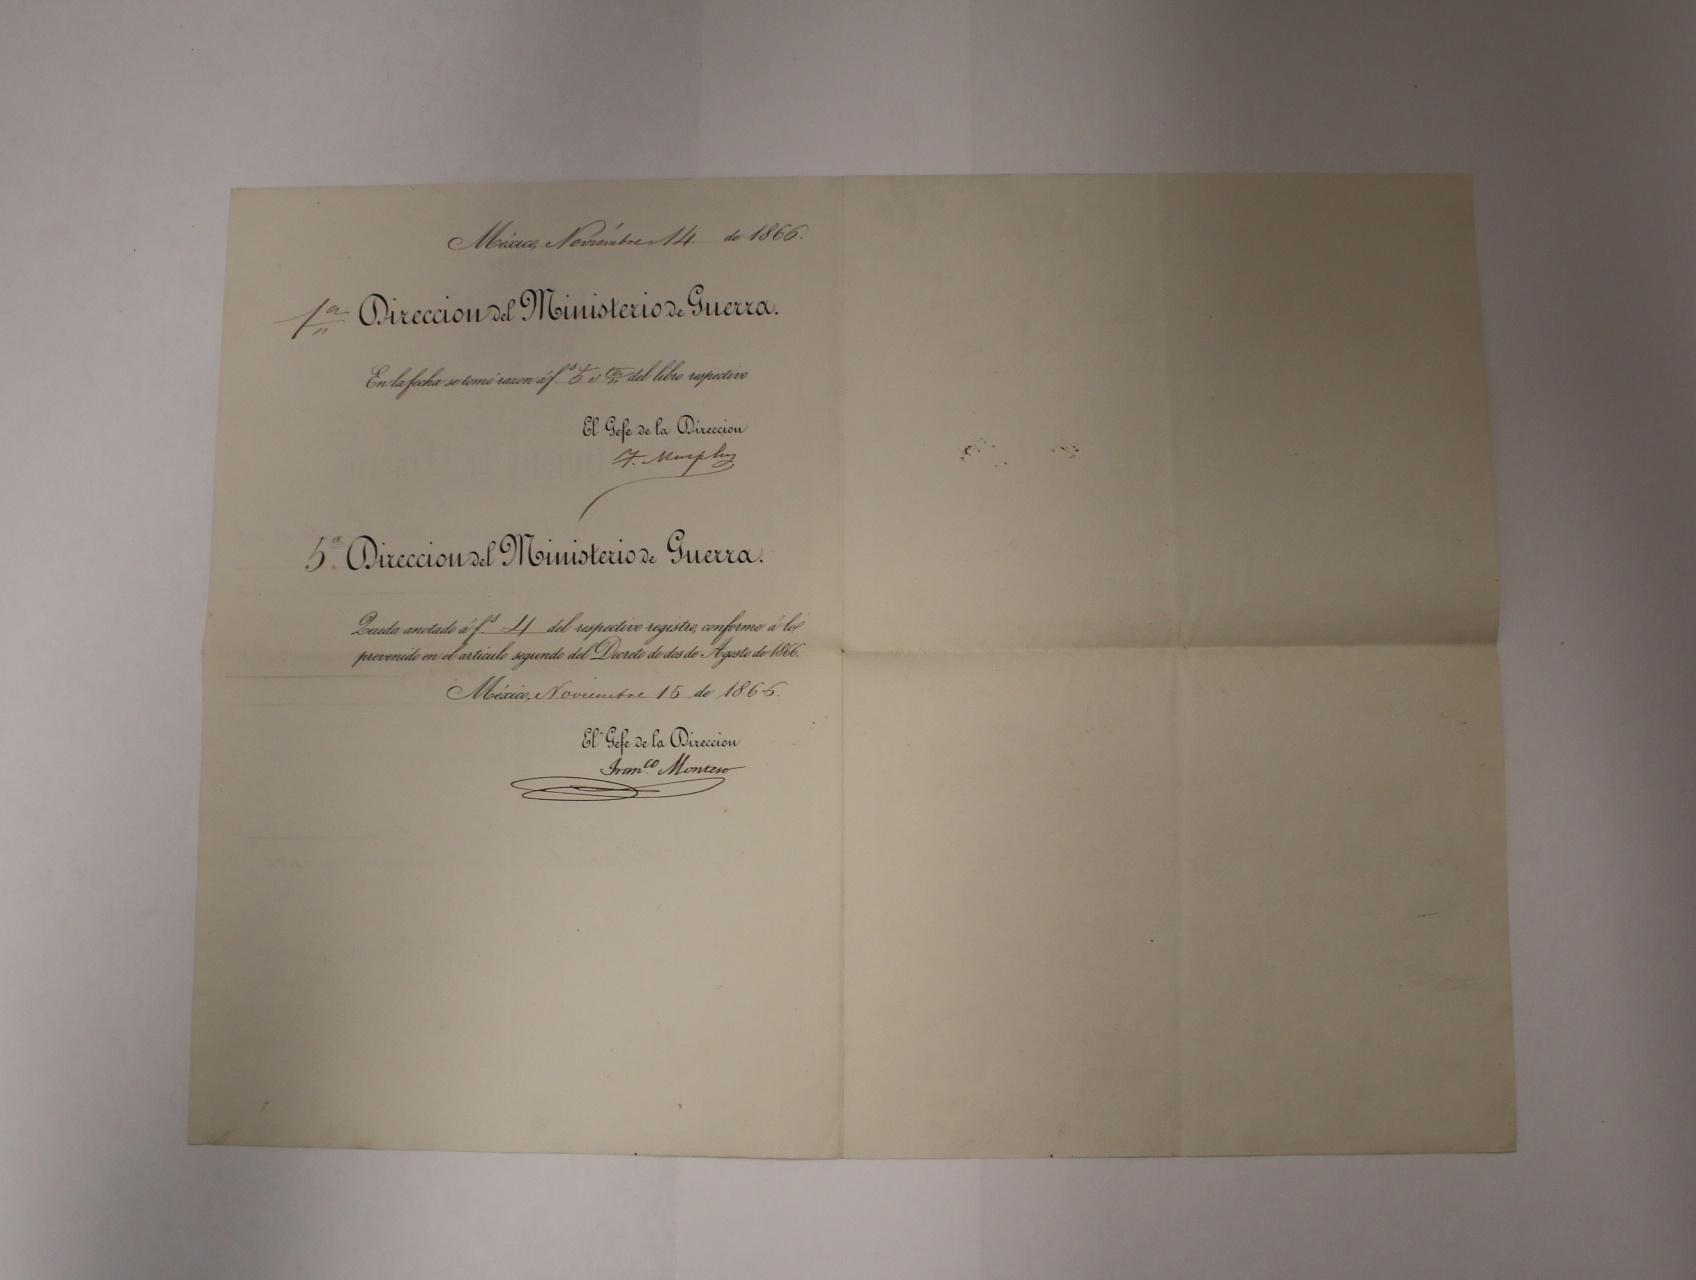 México, Noviembre 14 de 1866.
1ª Direccion del Ministerio de Guerra.
En la fecha se tomó razon á fˢ 5 del libro respectivo
El Gefe de la Direccion
T. Murphy
5ª Direccion del Ministerio de Guerra.
Queda anotado á fˢ 4 del respectivo registro, conforme á lo
prevenido en el artículo segundo del Decreto de dos de Agosto de 1866.
México, Noviembre 15 de 1866.
El Gefe de la Direccion
Franᶜᵒ Montero